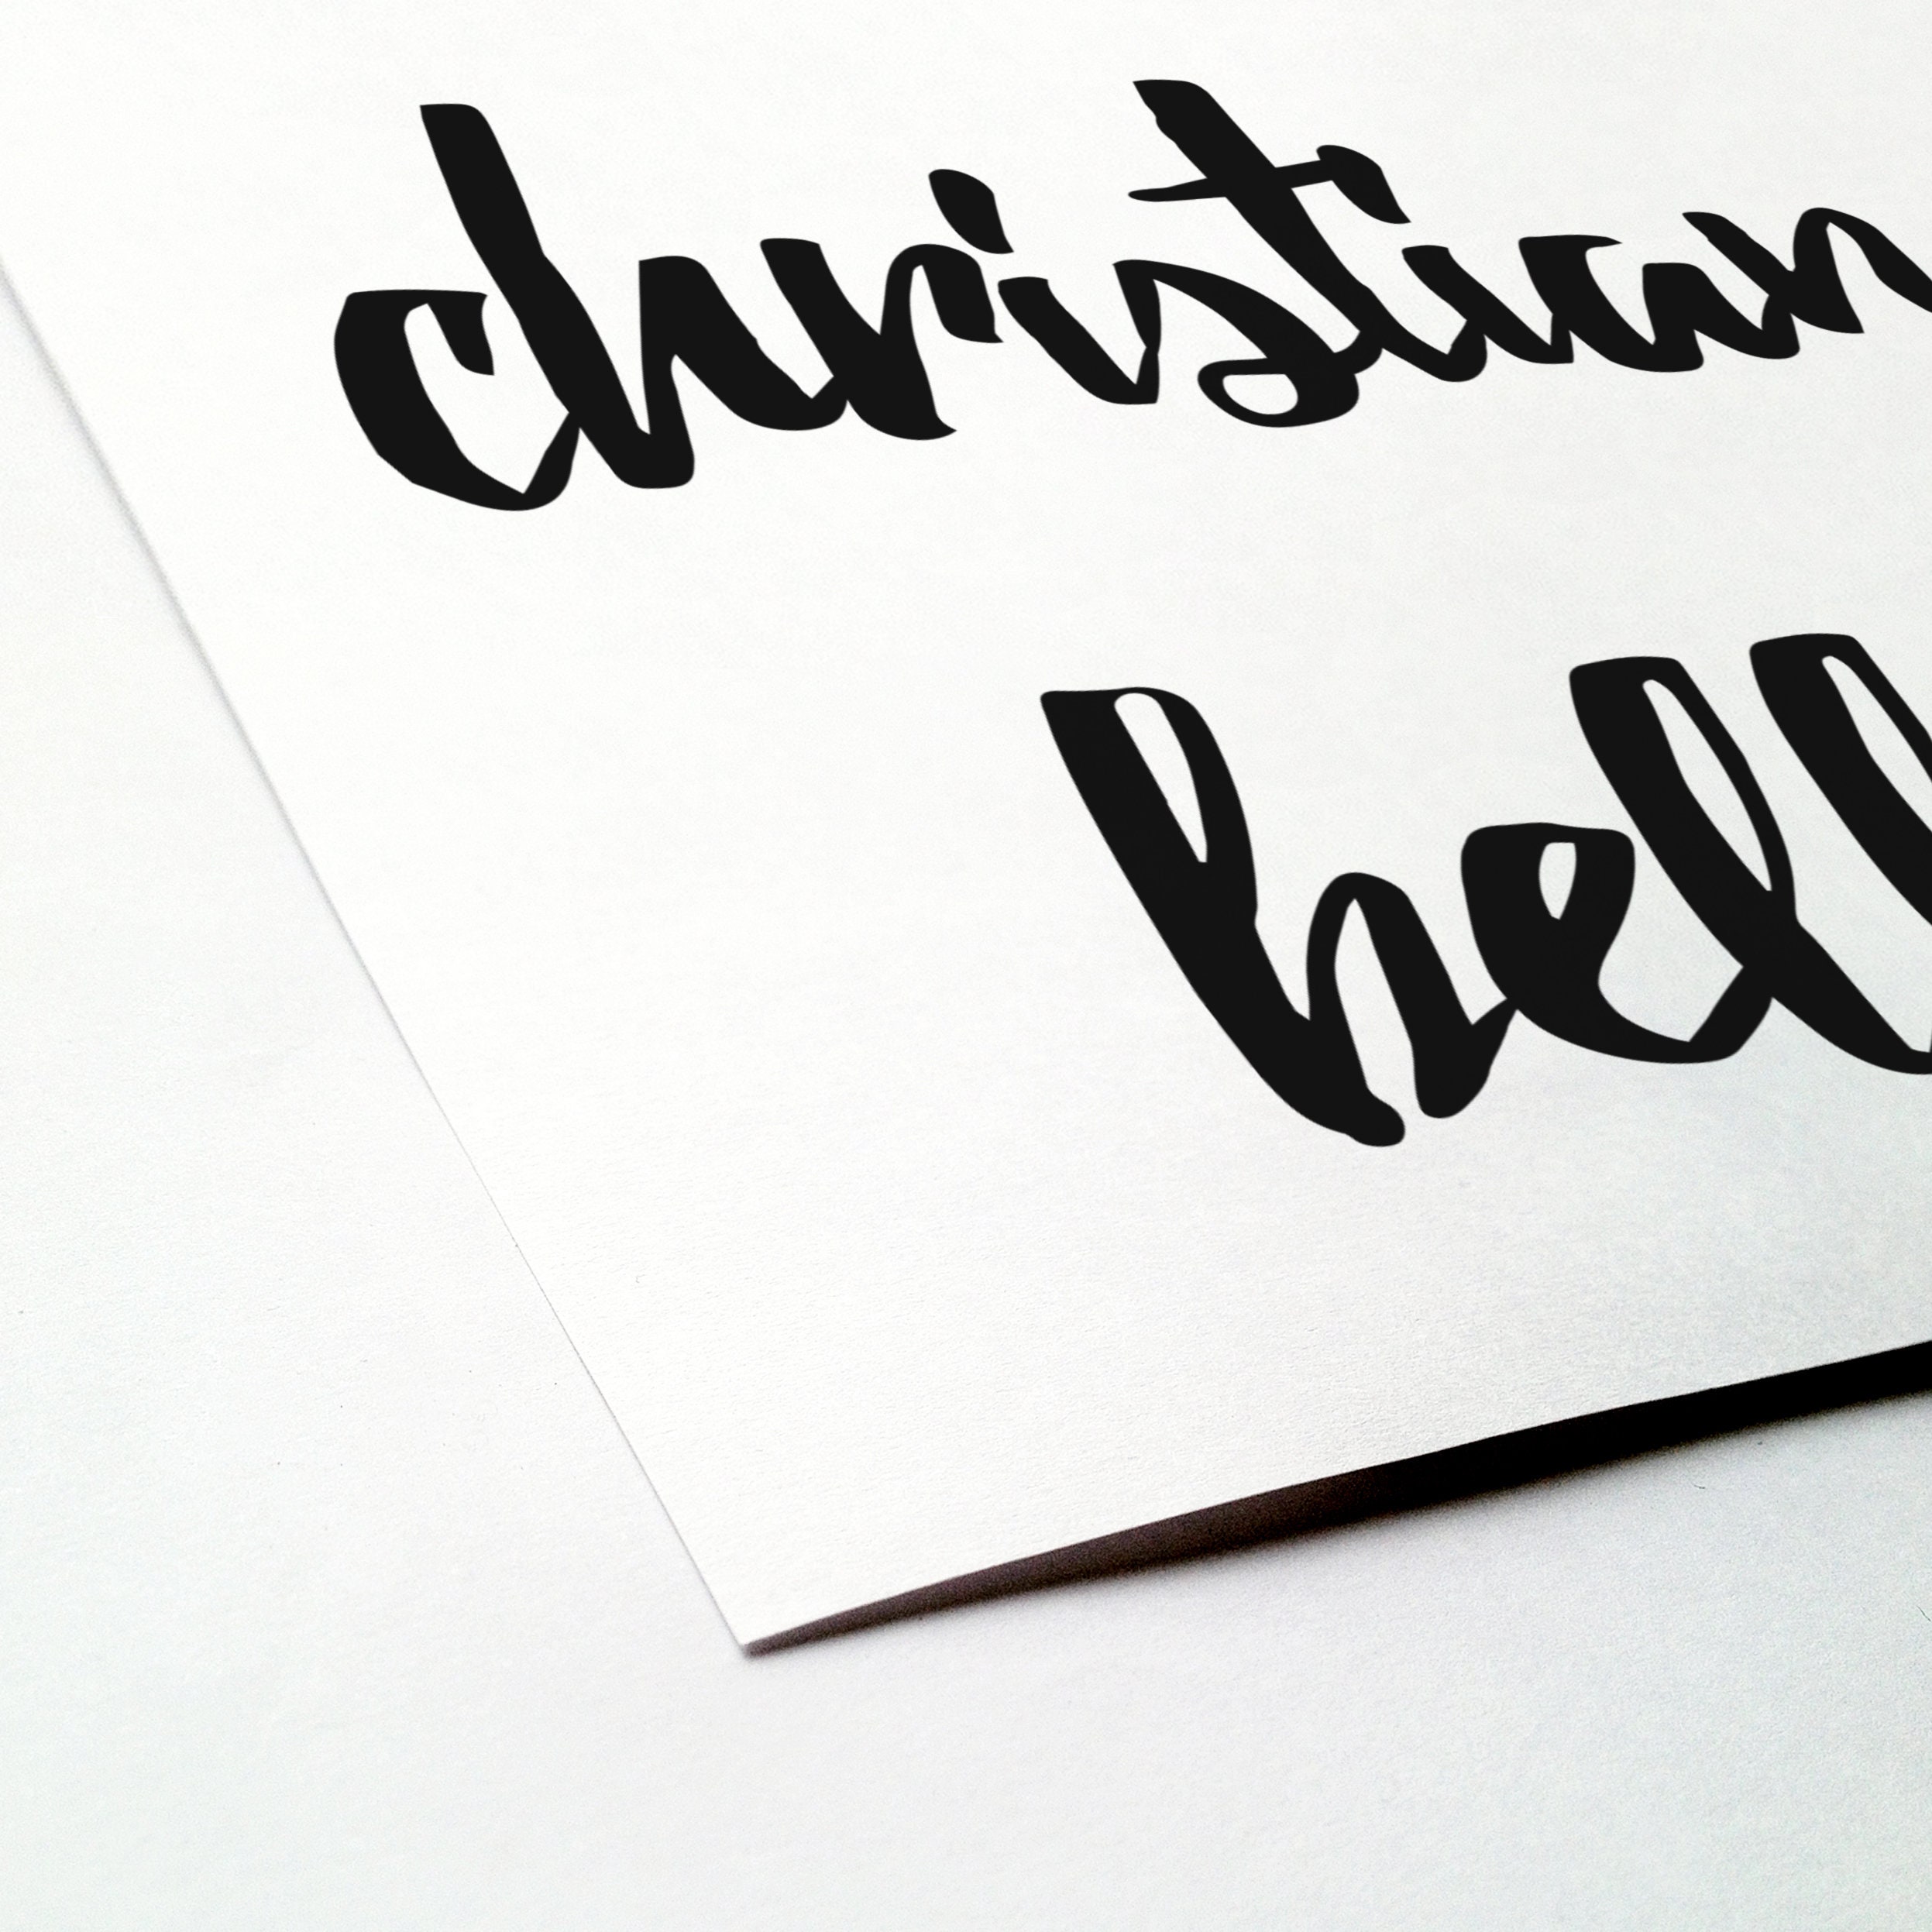 christian
hell